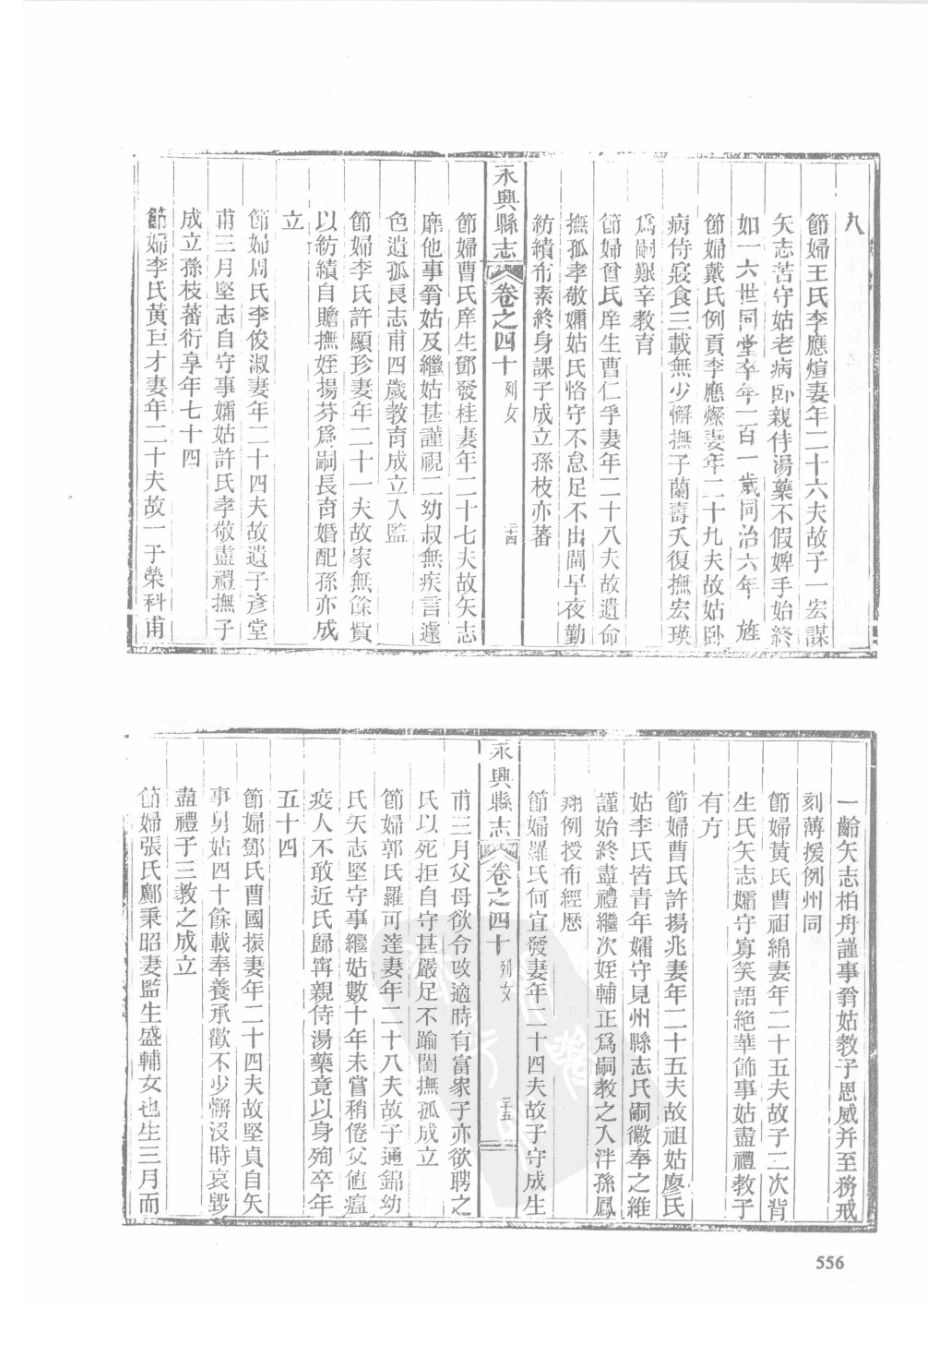 九
節婦王氏李應煊妻年二十六夫故子一宏謀
矢志苦守姑老病卧親侍湯藥不假婢手始終
如一六世同堂卒年一百一歲同治六年旌
節婦戴氏例貢李應燦妻年二十九夫故姑卧
病侍寢食三載無少懈撫子蘭壽夭復撫宏瑛
爲嗣艱辛教育
節婦曾氏庠生曹仁孚妻年二十八夫故遺命
撫孤孝敬孀姑氏恪守不怠足不出閫早夜勤
紡績布素終身課子成立孫枝亦蕃
永興縣志 卷之四十 列女 二十四
節婦曹氏庠生鄧發桂妻年二十七夫故矢志
靡他事翁姑及繼姑甚謹視二幼叔無疾言遽
色遺孤良志甫四歲教育成立入監
節婦李氏許顯珍妻年二十一夫故家無餘貲
以紡績自贍撫姪揚芬爲嗣長育婚配孫亦成
立
節婦周氏李俊淑妻年二十四夫故遺子彥堂
甫三月堅志自守事孀姑許氏孝敬盡禮撫子
成立孫枝蕃衍享年七十四
節婦李氏黃巨才妻年二十夫故一子榮科甫
一齡矢志柏舟謹事翁姑教子恩威并至務戒
刻薄援例州同
節婦黃氏曹祖綿妻年二十五夫故子二次背
生氏矢志孀守寡笑語絶華飾事姑盡禮教子
有方
節婦曹氏許揚兆妻年二十五夫故祖姑廖氏
姑李氏皆青年孀守見州縣志氏嗣徽奉之維
謹始終盡禮繼次姪輔正爲嗣教之入泮孫鳳
翔例授布經歷
節婦羅氏何宜發妻年二十四夫故子守成生
永興縣志 卷之四十 列女 二十五
甫三月父母欲令改適時有富家子亦欲聘之
氏以死拒自守甚嚴足不踰閫撫孤成立
節婦郭氏羅可達妻年二十八夫故子通錦幼
氏矢志堅守事繼姑數十年未嘗稍倦父値瘟
疫人不敢近氏歸甯親侍湯藥竟以身殉卒年
五十四
節婦鄧氏曹國振妻年二十四夫故堅貞自矢
事舅姑四十餘載奉養承歡不少懈沒時哀毀
盡禮子三教之成立
節婦張氏鄺秉昭妻監生盛輔女也生三月而
556